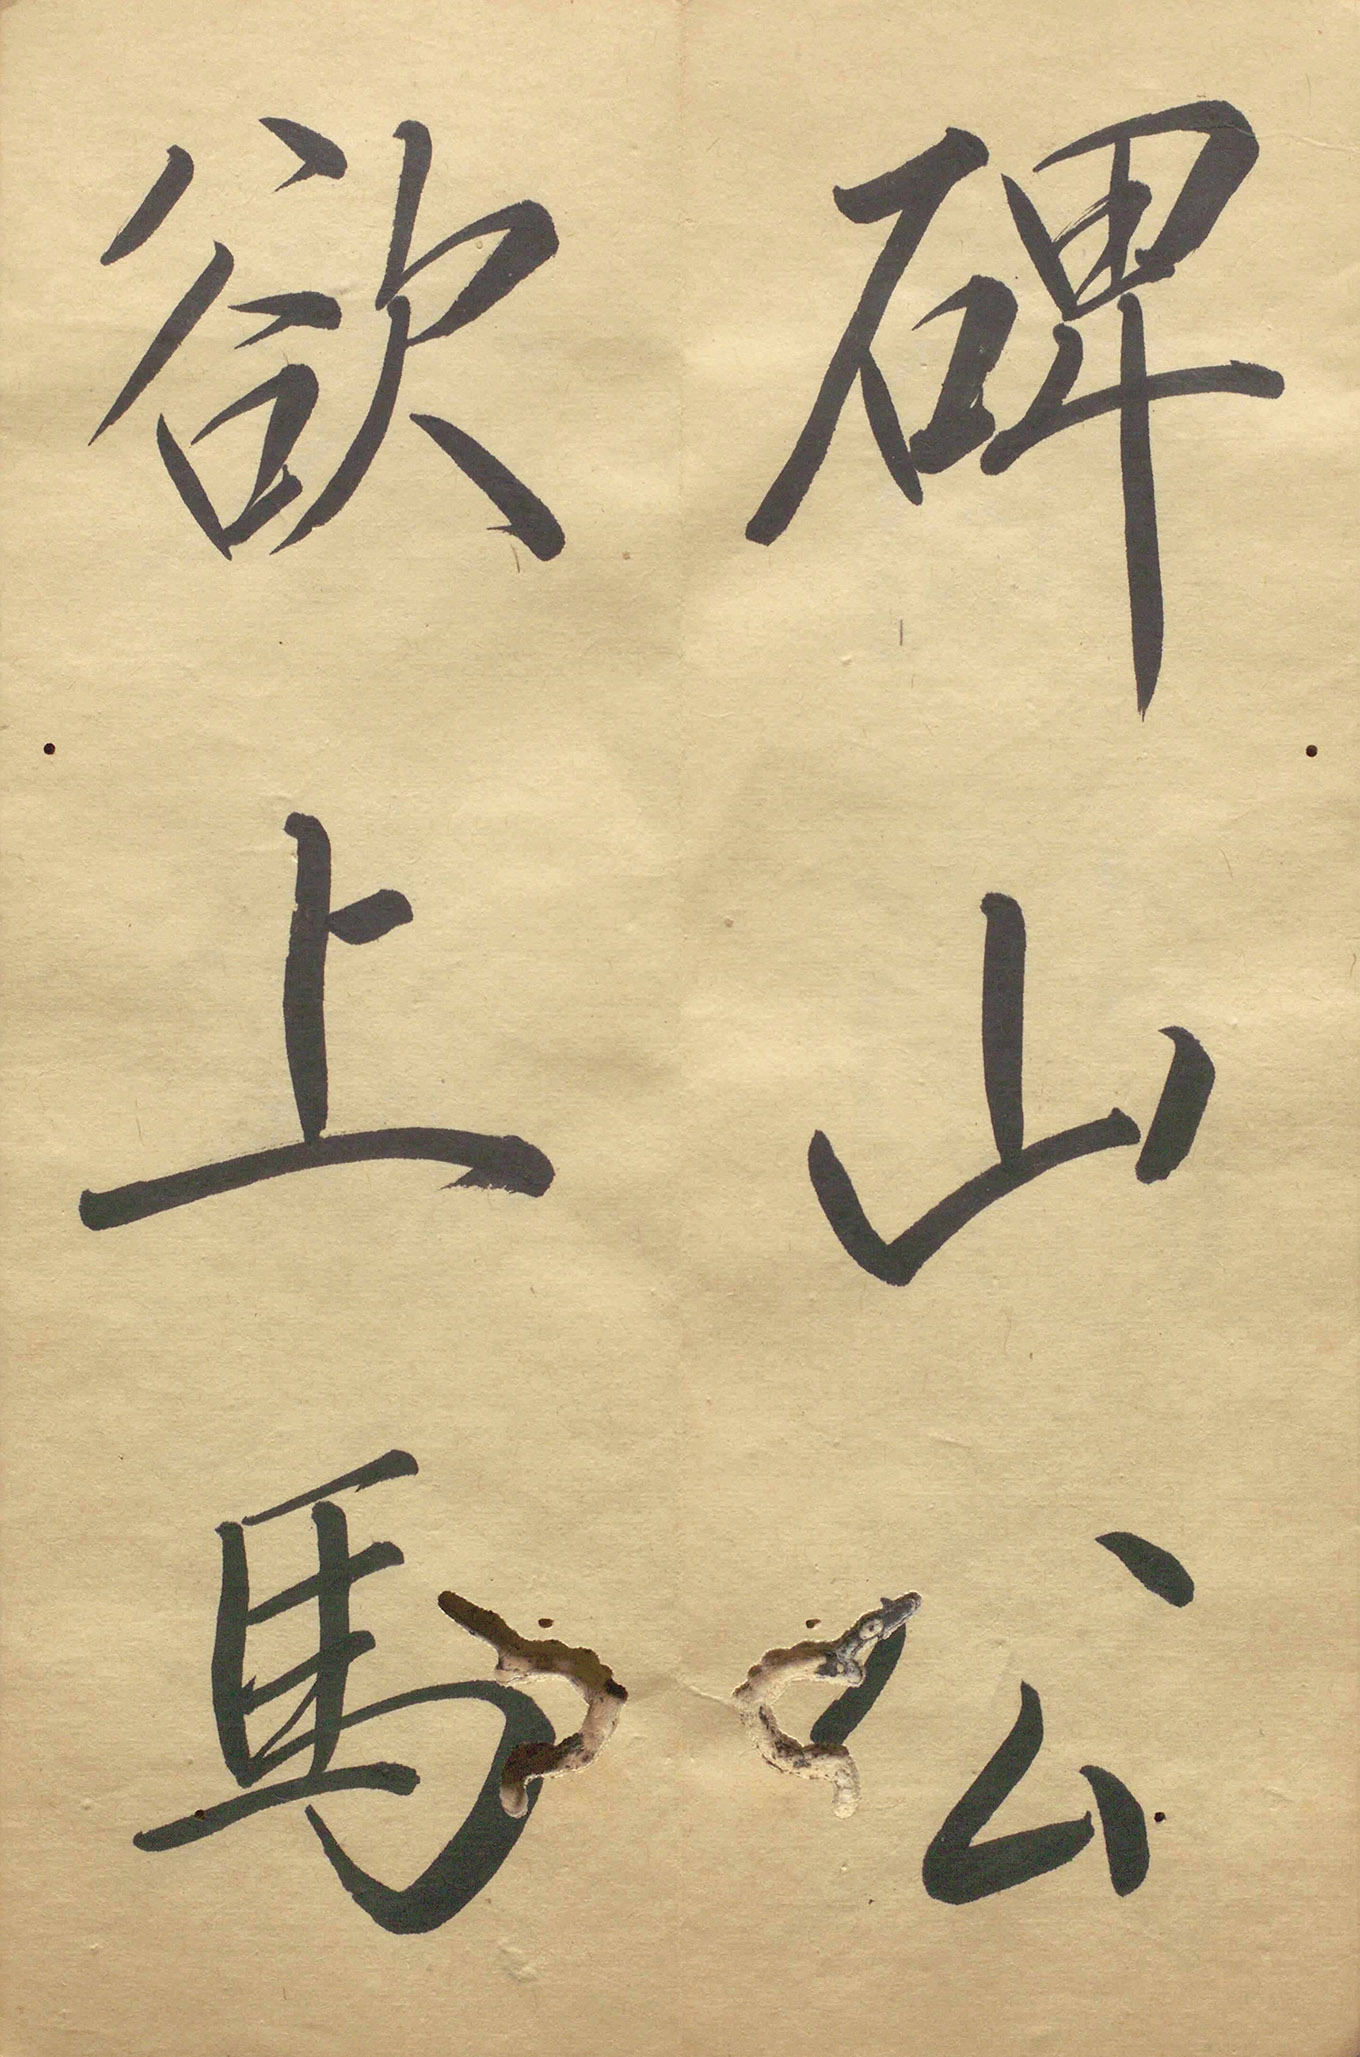 碑山公
欲上馬